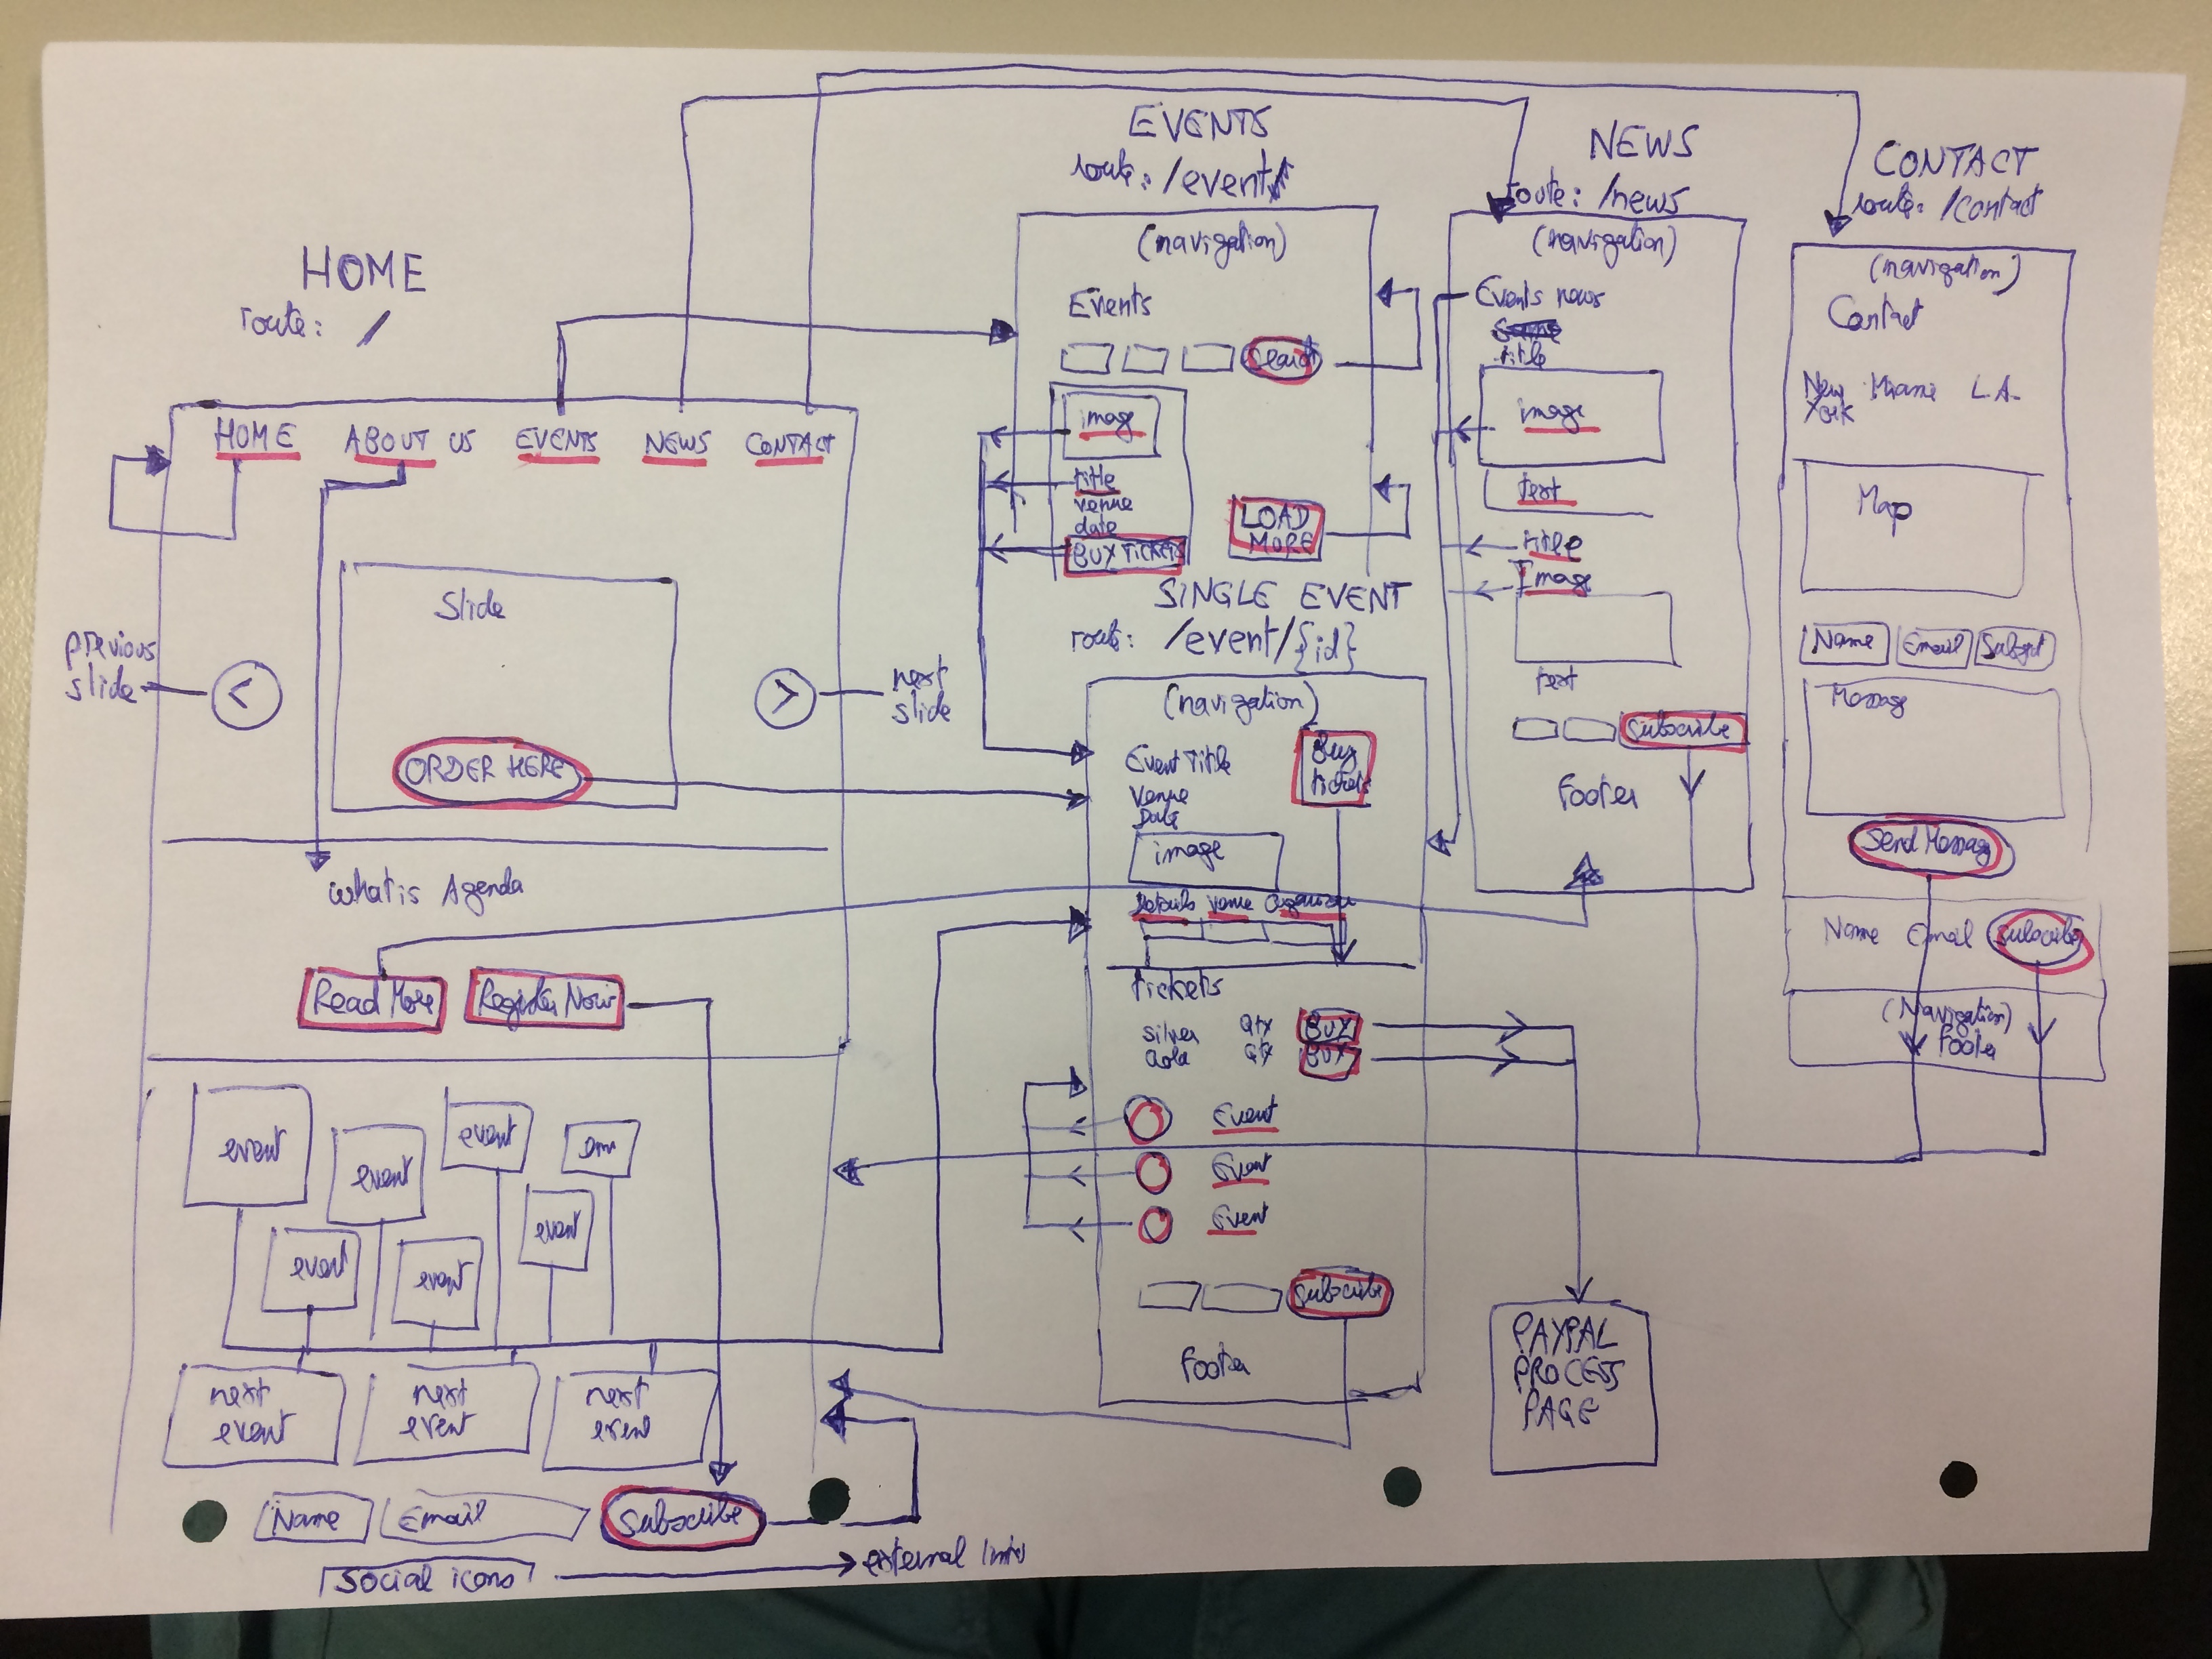 HOME
route: /
HOME ABOUT US EVENTS NEWS CONTACT
Slide
previous
slide
<
>
next
slide
ORDER HERE
What is Agenda
Read More
Register Now
event
event
event
event
event
event
next
event
next
event
next
event
Name
Email
Subscribe
Social icons
external
EVENTS
route: /event
(navigation)
Events
Search
image
title
venue
date
BUY TICKETS
LOAD
MORE
SINGLE EVENT
route: /event/{id}
(navigation)
Event Title
Venue
Date
Buy
tickets
image
Details Venue Organizer
Tickets
Silver QTY BUY
Gold QTY BUY
Event
Event
Event
Subscribe
Footer
NEWS
route: /news
(navigation)
Events news
title
image
text
title
Image
text
Subscribe
Footer
PAYPAL
PROCESS
PAGE
CONTACT
route: /contact
(navigation)
Contact
New
York
Miami L.A.
Map
Name
Email
Message
Send Messag
Name Email Subscribe
(Navigation)
Footer